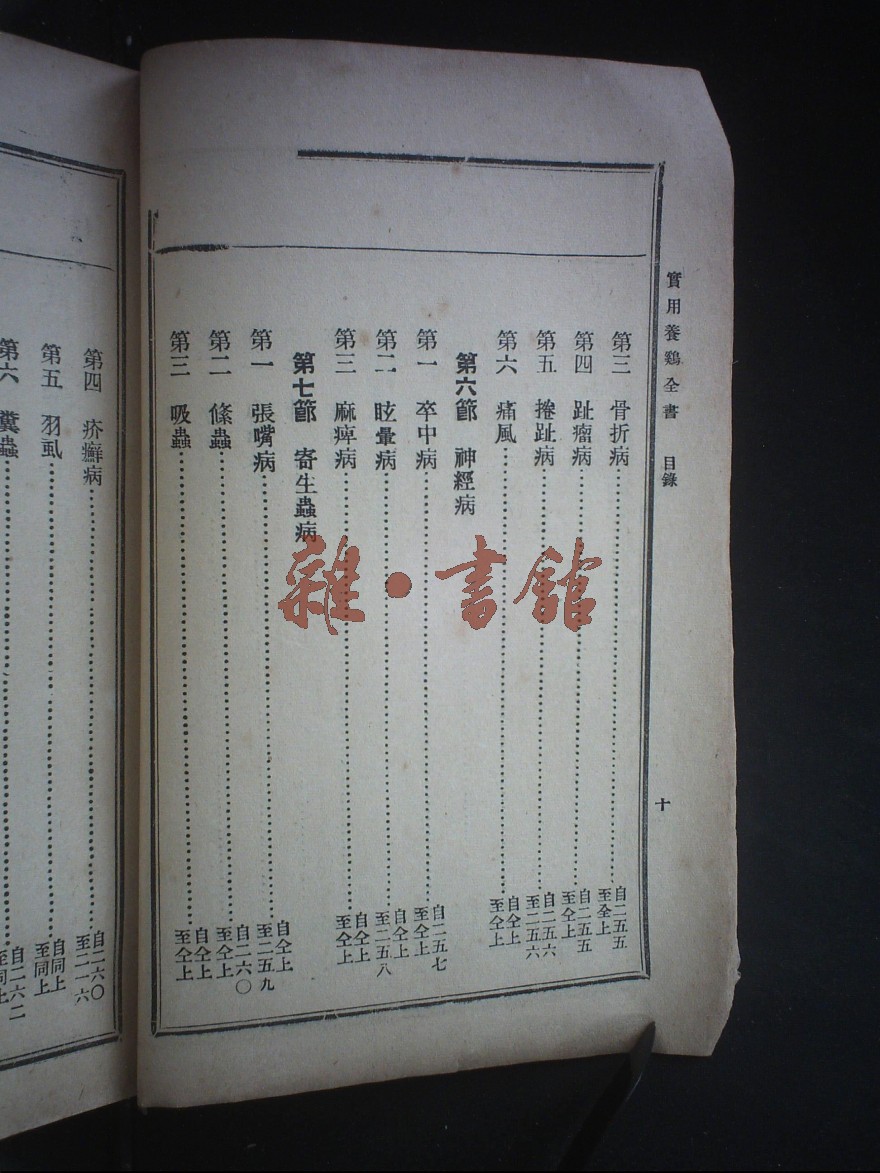 實用養鷄全書 目錄
十
第三 骨折病 自二五五 至仝上
第四 趾瘤病 自二五五 至仝上
第五 捲趾病 自二五六 至二五六
第六 痛風 自仝上 至仝上
第六節 神經病
第一 卒中病 自二五七 至仝上
第二 眩暈病 自仝上 至二五八
第三 麻痺病 自仝上 至仝上
第七節 寄生蟲病
第一 張嘴病 自仝上 至二五九
第二 絛蟲 自二六〇 至仝上
第三 吸蟲 自仝上 至仝上
第四 疥癬病 自二六〇 至二一六
第五 羽虱 自同上 至同上
第六 糞蟲 自二六二 至同上
雜·書館